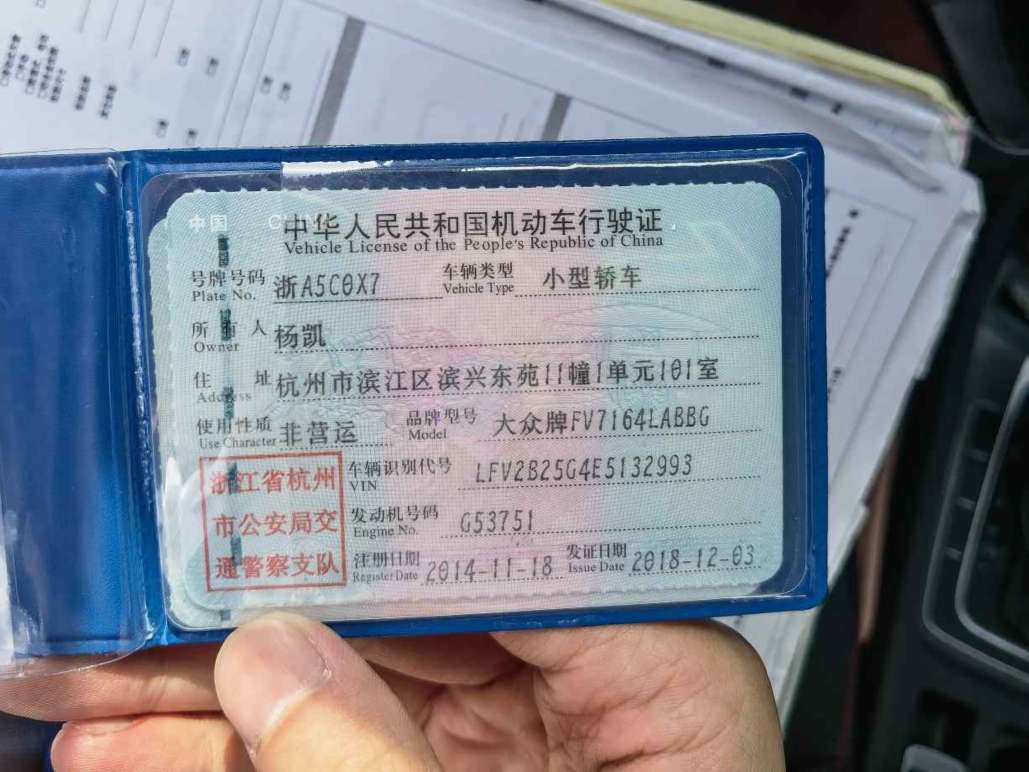 中国 CHINA
中华人民共和国机动车行驶证
Vehicle License of the People's Republic of China
号牌号码 浙A5C0X7 车辆类型 小型轿车
Plate No. Vehicle Type
所有人 杨凯
Owner
住址 杭州市滨江区滨兴东苑11幢1单元101室
Address
使用性质 非营运 品牌型号 大众牌FV7164LABBG
Use Character Model
浙江省杭州
市公安局交
通警察支队
车辆识别代号 LFV2B25G4E5132993
VIN
发动机号码 G53751
Engine No.
注册日期 2014-11-18 发证日期 2018-12-03
Register Date Issue Date